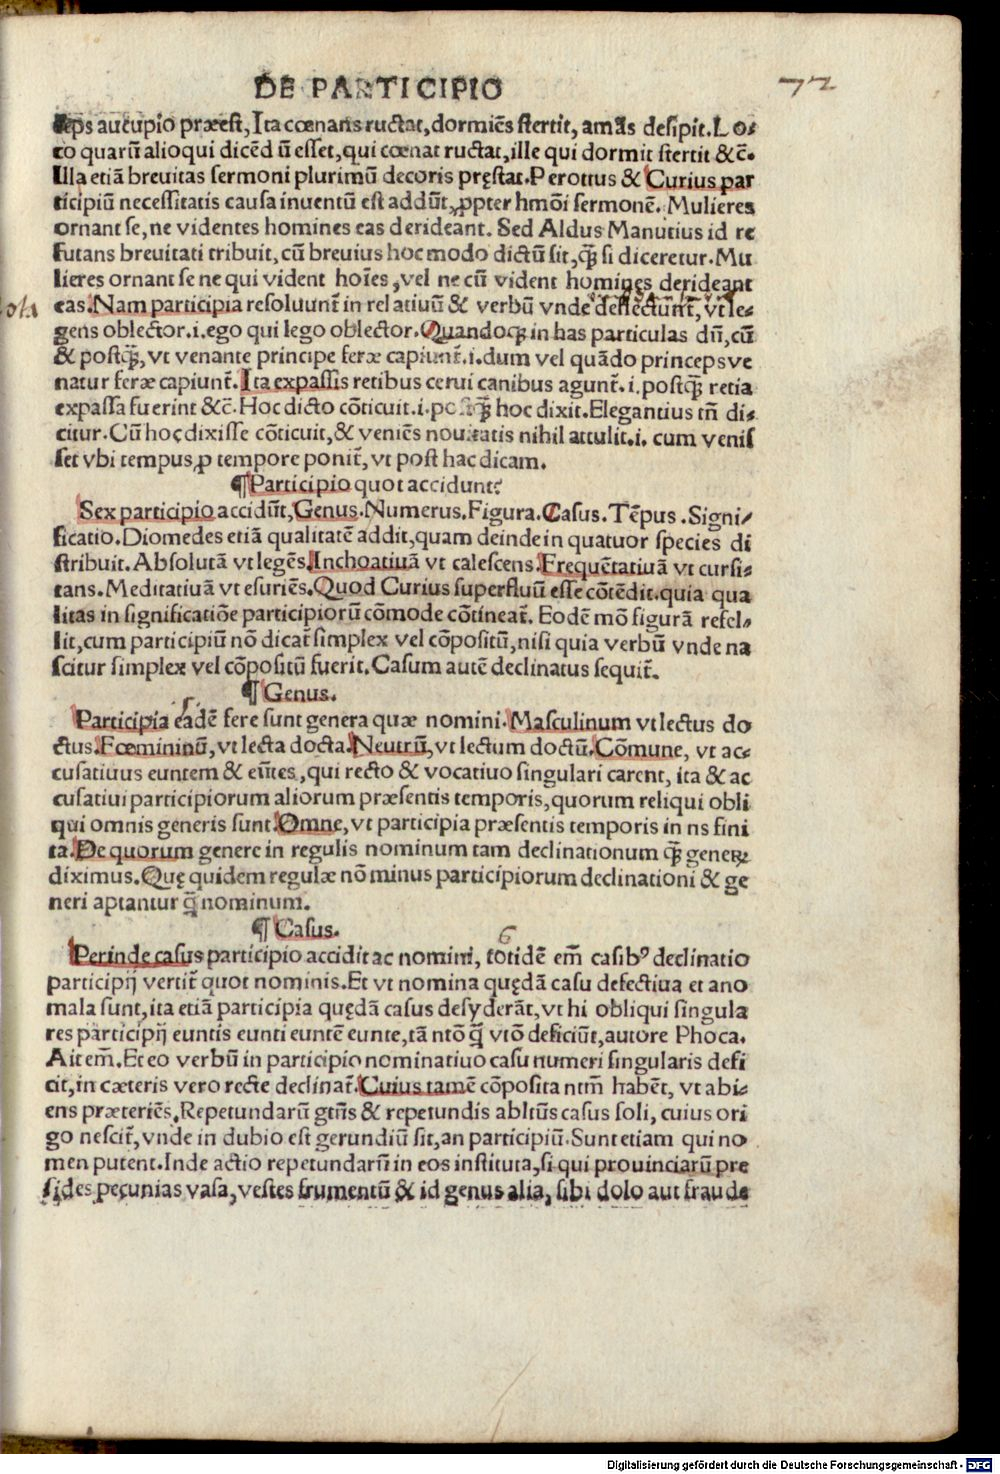 DE PARTICIPIO
72
ceps aucupio præest, Ita cœnans ructat, dormiēs stertit, amās desipit. Lo⸗
co quarū alioqui dicēd ū esset, qui cœnat ructat, ille qui dormit stertit &c̄.
Illa etiā breuitas sermoni plurimū decoris pręstat. Perottus & Curius par
ticipiū necessitatis causa inuentū est addūt, ꝓpter hmōi sermonē. Mulieres
ornant se, ne videntes homines eas derideant. Sed Aldus Manutius id re
futans breuitati tribuit, cū breuius hoc modo dictū sit, q̄ȝ si diceretur. Mu
lieres ornant se ne qui vident hoīes, vel ne cū vident homines derideant
eas. Nam participia resoluunt̄ in relatiuū & verbū vnde deflectunt̄, vt le⸗
gens oblector .i. ego qui lego oblector. Quandoqȝ in has particulas dū, cū
& postq̄ȝ, vt venante principe feræ capiunt̄ .i. dum vel quādo princeps ve
natur feræ capiunt̄. Ita expassis retibus cerui canibus agunt̄ .i. postq̄ȝ retia
expassa fuerint &c̄. Hoc dicto cōticuit .i. postq̄ȝ hoc dixit. Elegantius tn̄ di⸗
citur. Cū hoc dixisse cōticuit, & veniēs nouitatis nihil attulit .i. cum venis
set vbi tempus ꝓ tempore ponit̄, vt post hac dicam.
¶ Participio quot accidunt?
Sex participio accidūt, Genus. Numerus. Figura. Casus. Tēpus. Signi⸗
ficatio. Diomedes etiā qualitatē addit, quam deinde in quatuor species di
stribuit. Absolutā vt legēs. Inchoatiuā vt calescens. Frequētatiuā vt cursi⸗
tans. Meditatiuā vt esuriēs. Quod Curius superfluū esse cōtēdit. quia qua
litas in significatiōe participiorū cōmode cōtineat̄. Eodē mō figurā refel⸗
lit, cum participiū nō dicat̄ simplex vel cōpositū, nisi quia verbū vnde na
scitur simplex vel cōpositū fuerit. Casum autē declinatus sequit̄.
¶ Genus.
Participia eadē fere sunt genera quæ nomini. Masculinum vt lectus do
ctus. Fœmininū, vt lecta docta. Neutrū, vt lectum doctū. Cōmune, vt ac⸗
cusatiuus euntem & eūtes, qui recto & vocatiuo singulari carent, ita & ac
cusatiui participiorum aliorum præsentis temporis, quorum reliqui obli
qui omnis generis sunt. Omne, vt participia præsentis temporis in ns fini
ta. De quorum genere in regulis nominum tam declinationum q̄ȝ generꝝ
diximus. Quę quidem regulæ nō minus participiorum declinationi & ge
neri aptantur q̄ȝ nominum.
¶ Casus.
6
Perinde casus participio accidit ac nomini, totidē em̄ casibꝰ declinatio
participij vertit̄ quot nominis. Et vt nomina quędā casu defectiua et ano
mala sunt, ita etiā participia quędā casus desyderāt, vt hi obliqui singula
res participij euntis eunti euntē eunte, tā ntō q̄ȝ vtō deficiūt, autore Phoca.
Ait em̄. Et eo verbū in participio nominatiuo casu numeri singularis defi
cit, in cæteris vero recte declinat̄. Cuius tamē cōposita ntm̄ habēt, vt abi⸗
ens præteriēs. Repetundarū gtūs & repetundis abltūs casus soli, cuius ori
go nescit̄, vnde in dubio est gerundiū sit, an participiū. Sunt etiam qui no
men putent. Inde actio repetundarū in eos instituta, si qui prouinciarū pre
sides pecunias vasa, vestes frumentū & id genus alia, sibi dolo aut fraude
Digitalisierung gefördert durch die Deutsche Forschungsgemeinschaft - DFG